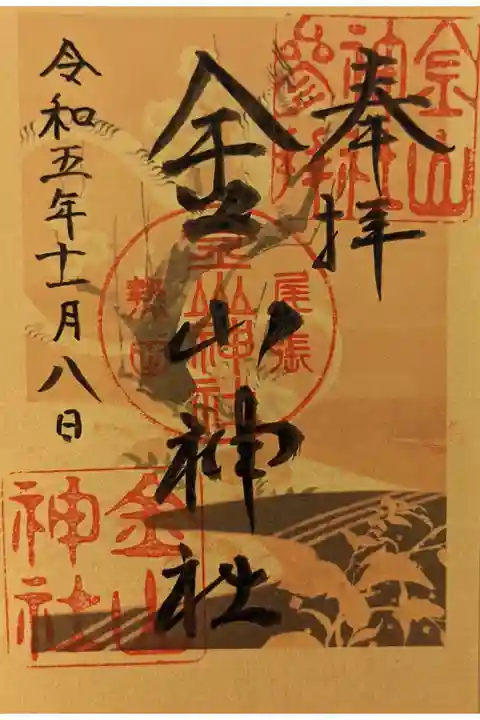 奉拝
金山神社
令和五年十一月八日
金山
神社
参拝
尾張
金山神社
熱田
金山
神社